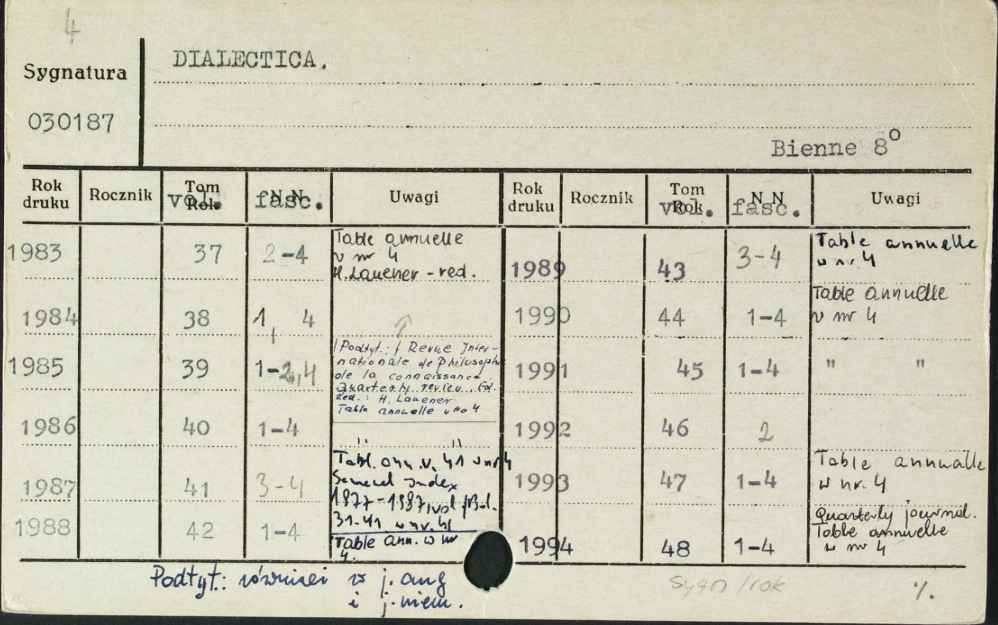 4
Sygnatura
030187
DIALECTICA.
Bienne 8°
Rok druku Rocznik Tom Rok vol. N.N. fasc. Uwagi
1983 37 2-4 Table annuelle
w nr 4
H. Lauener - red.
1984 38 1, 4
1985 39 1-2,4 (Podtyt.: Revue Inter-
nationale de Philosophie
de la connaissance
Quarterly review
Red.: H. Lauener
Table annuelle w no 4
1986 40 1-4 " "
1987 41 3-4 Tabl. ann. v. 41 w nr 4
General Index
vol.
31-41 w nr 4
1988 42 1-4 Table ann. w nr
4.
Rok druku Rocznik Tom Rok vol. N.N. fasc. Uwagi
1989 43 3-4 Table annuelle
w nr. 4
1990 44 1-4 Table annuelle
w nr 4
1991 45 1-4 " "
1992 46 2
1993 47 1-4 Table annuelle
w nr. 4
1994 48 1-4 Quarterly journal.
Table annuelle
w nr 4
Podtyt.: również w j. ang
i j. niem.
Sygn/rok
%.